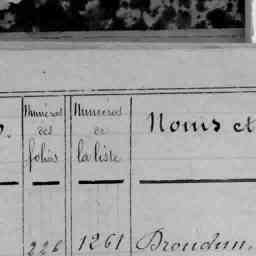 Numéros des folios
Numéros de la liste
Noms et
226 1261 Broudun,